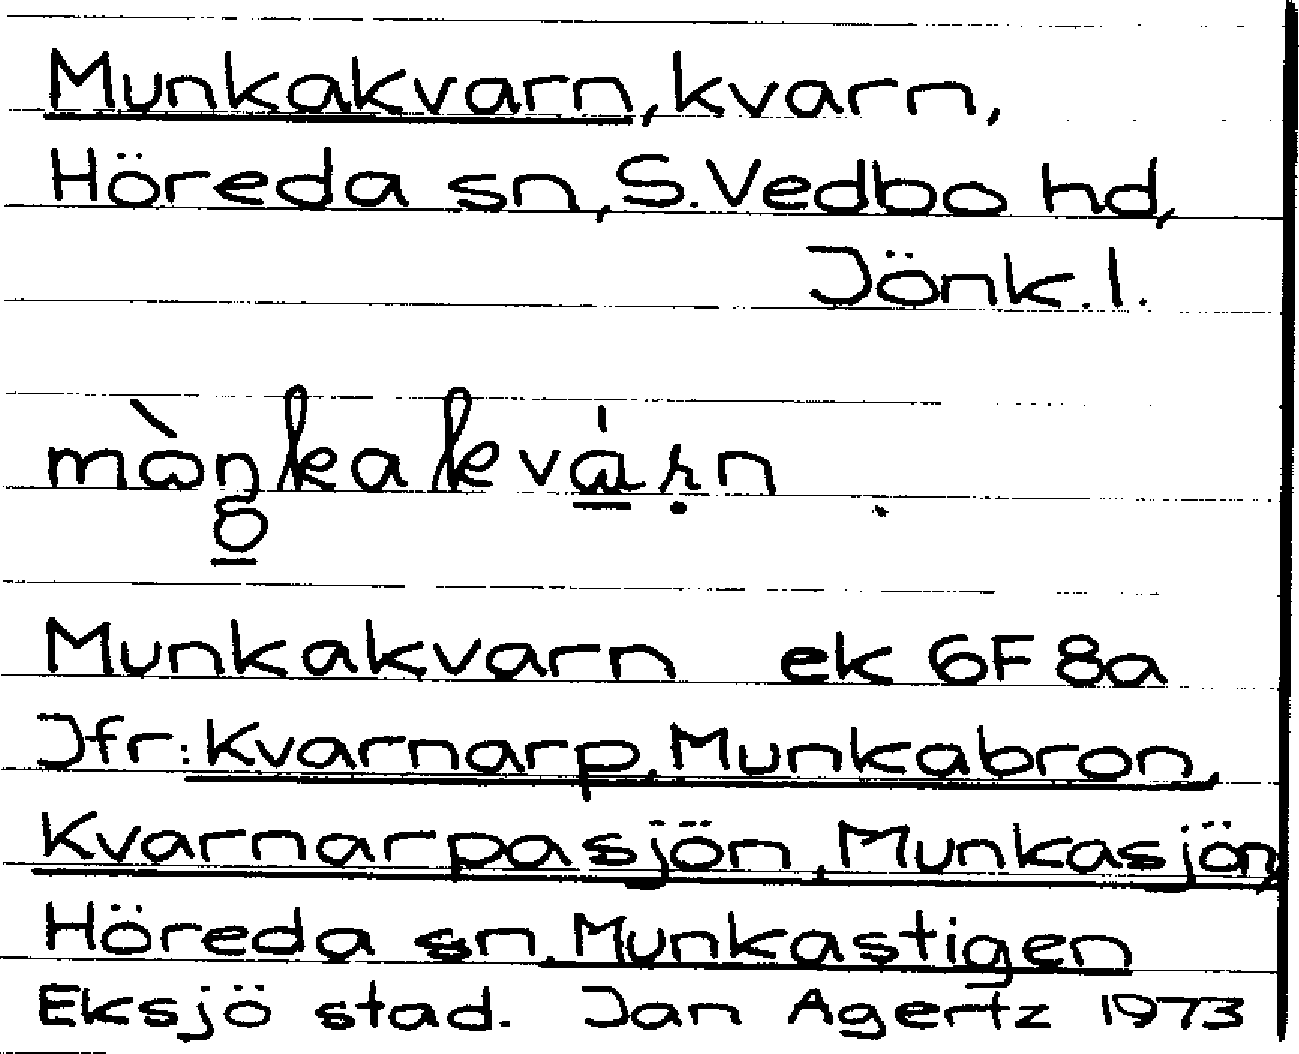 Munkakvarn, kvarn,
Höreda sn, S. Vedbo hd,
Jönk. l.
Munkakvarn ek 6F 8a
Jfr: Kvarnarp, Munkabron,
Kvarnarpasjön, Munkasjön,
Höreda sn, Munkastigen
Eksjö stad. Jan Agertz 1973